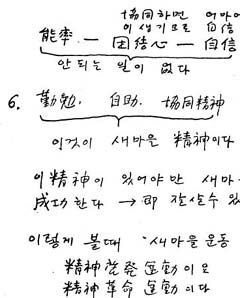 協同하면
이 생기므로 自信
能率 — 団結心 — 自信
안 되는 일이 없다
6. 勤勉, 自助, 協同精神
이것이 새마을 精神이다
이 精神이 있어야만 새마
成功한다 → 即 잘살수 있
이렇게 볼때 새마을 운동
精神啓発운動이오
精神革命운動이다